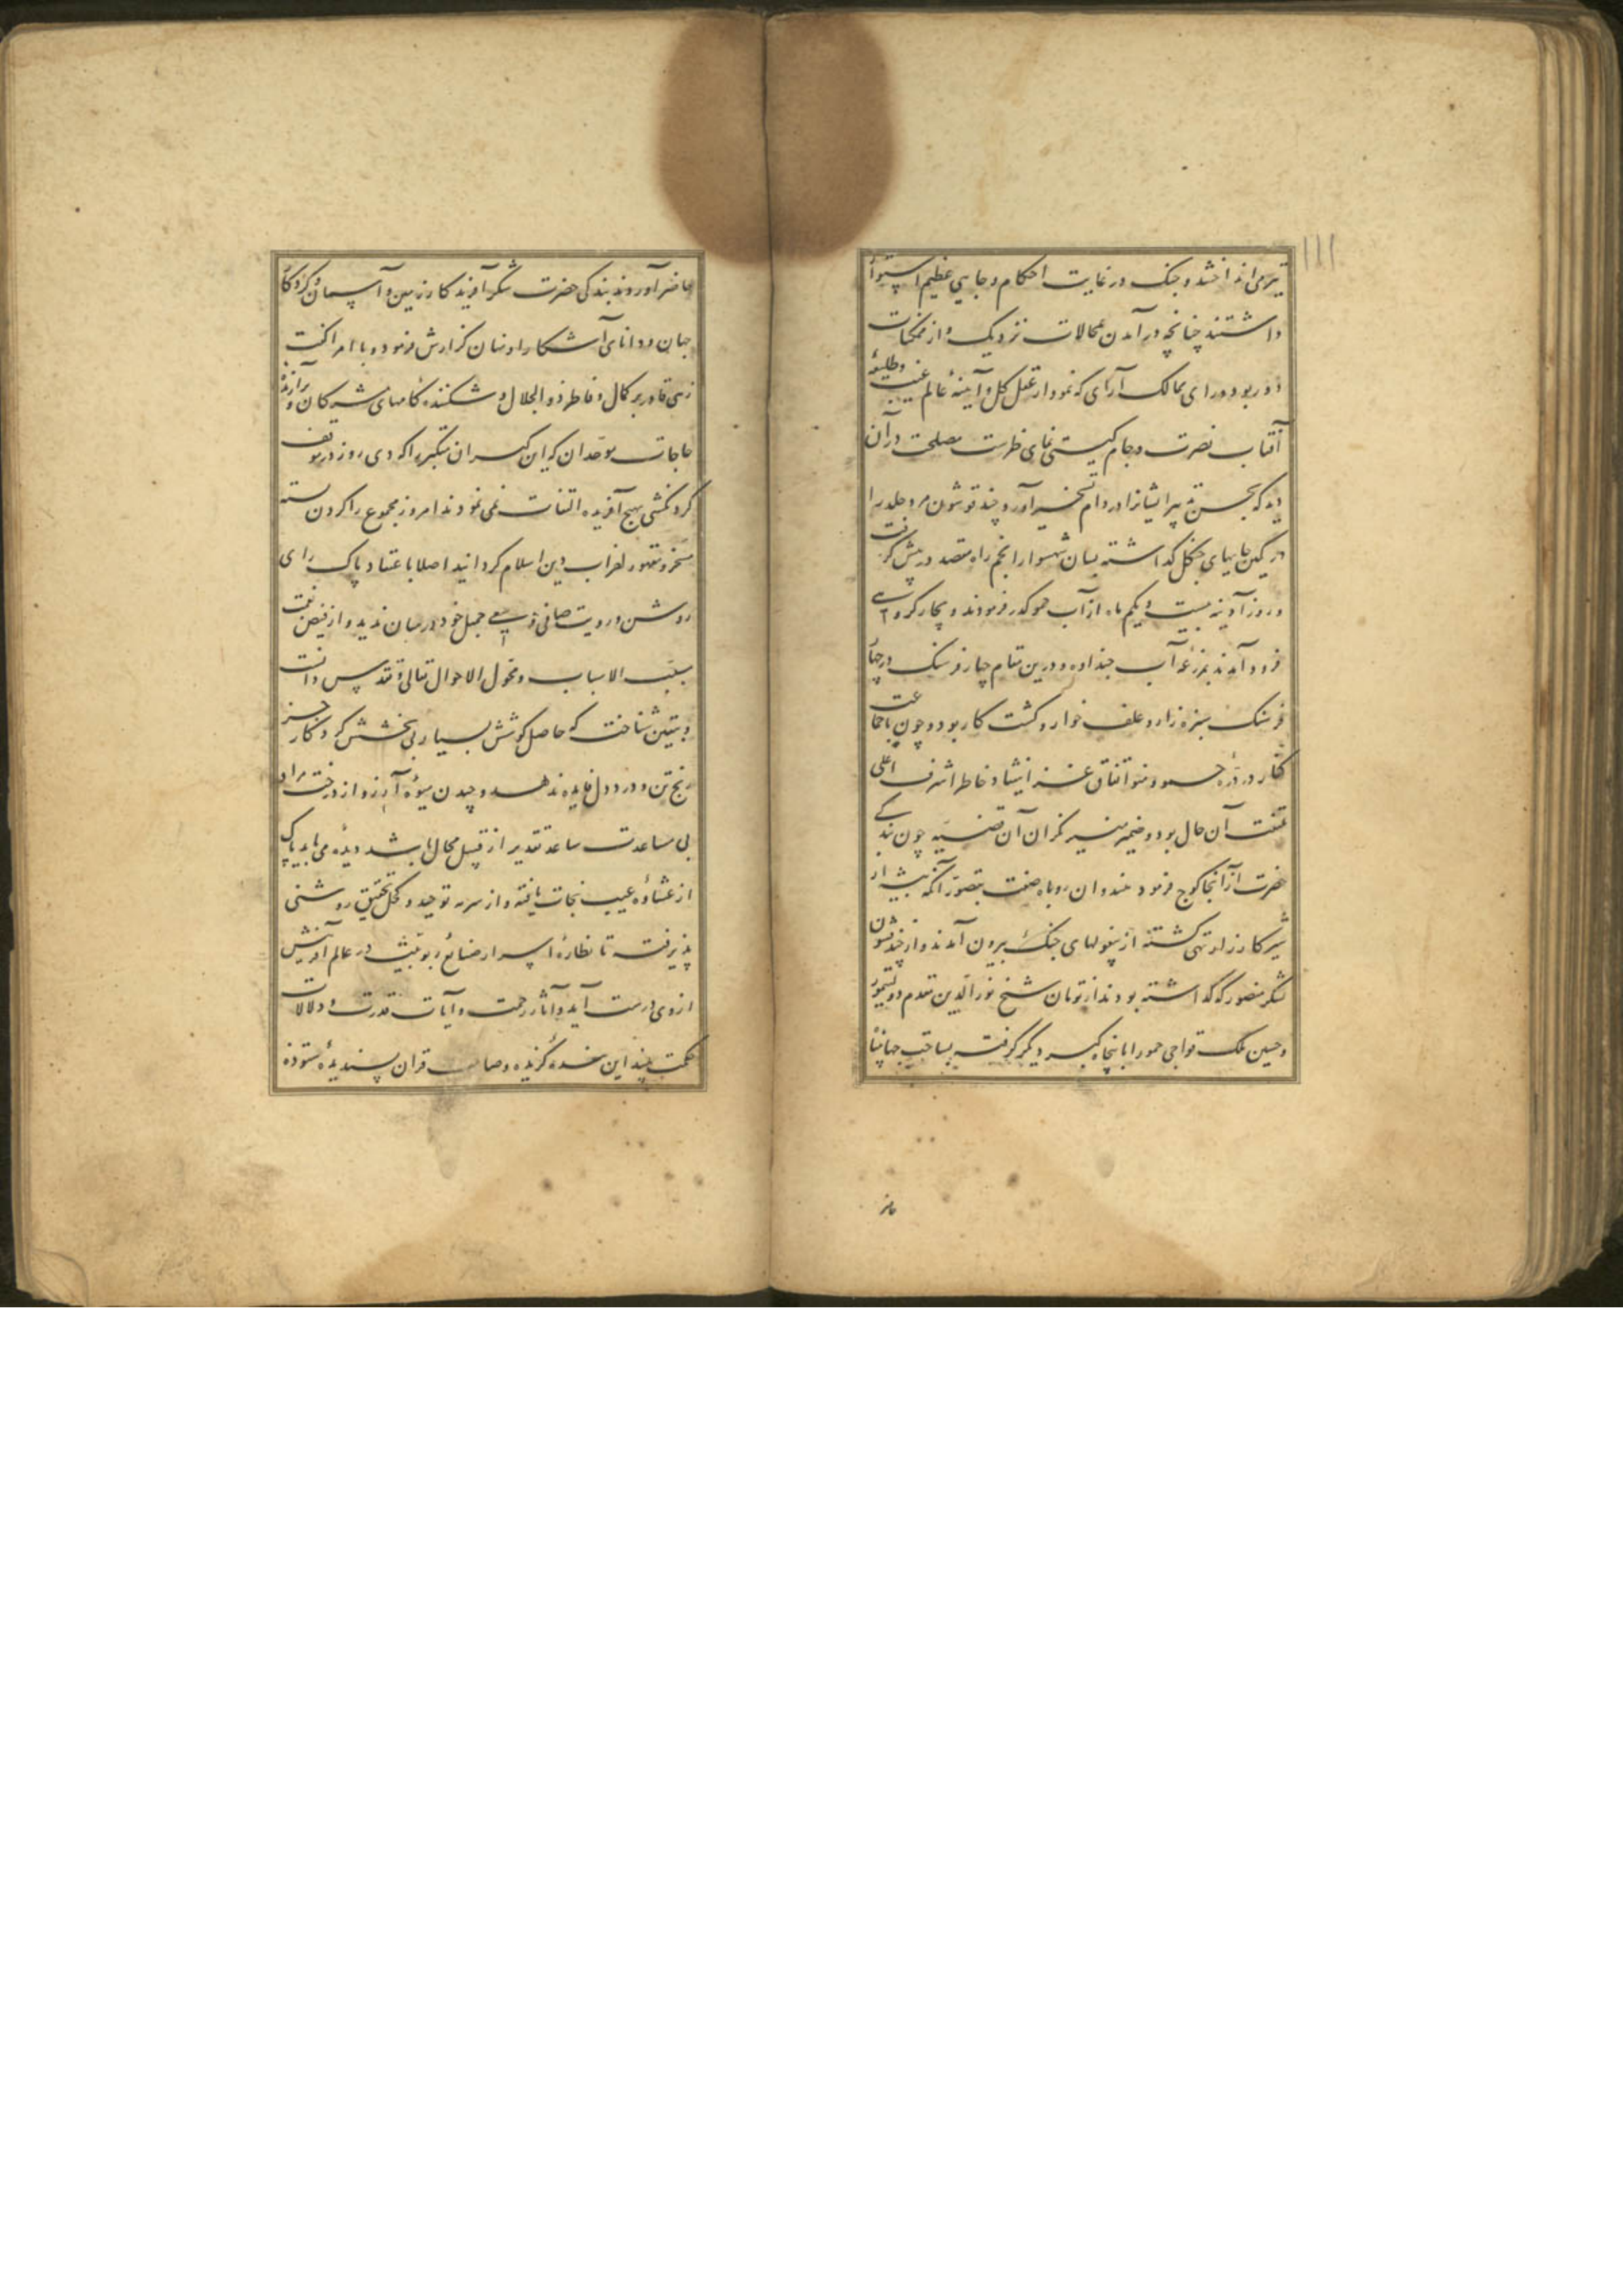 تیر می انداختند و جنک در غایت احکام و جایی عظیم استوار
داشتند چنانچه در آمدن بمحالات نزدیک و از ممکنات
دور بود و رای ممالک آرای که نمودار عقل کل و آینهٔ عالم غیب و طلیعهٔ
آفتاب نصرت و جام کیتی نمای ظفرست مصلحت در آن
دید که بحسن تدبیر ایشانرا در دام تسخیر آورد چند قوشون مرد جلد را
در کمین جایهای جنکل کذاشته بسان شهسوار انجم راه مقصد در پیش کرفت
و روز آدینه بیست و یکم ماه از آب جمو کذر فرمودند و بچهار کروهی
فرود آمدند بمزرعهٔ آب جنداوه و درین مقام چهار فرسنک در چهار
فرسنک سبزه زار و علف خوار و کشت کار بود و چون با جماعت
کفار در درهٔ جمو و منو اتفاق غزا نیفتاد خاطر اشرف اعلی
ملتفت آن حال بود و ضمیر منیر نکران آن قضیه چون بندکی
حضرت از آنجا کوچ فرمود هندوان روباه صفت بتصور آنکه بیشه از
شیر کارزار تهی کشته از بیغولهای جنکل بیرون آمدند و از چند قوشون
لشکر منصور که کذاشته بودند از تومان شیخ نورالدین مقدم دولتیمور
و حسین ملک قوجی جمو را با پنجاه کبر دیکر کرفت بصاحب جهانپناه
حاضر
حاضر آوردند بندکی حضرت شکر آفریدکار زمین و آسمان و کردکار
جهان و دانای آشکارا و نهان کزارش فرمود و با امرا کفت
زهی قادر بر کمال و فاطر ذو الجلال و شکنندهٔ کامهای مشرکان و برآرندهٔ
حاجات موحدان که این کبران متکبر را که دی روز در موقف
کردنکشی بهیچ آفریده التفات نمی نمودند امروز مجموع را کردن بسته
مسخر و مقهور اهل دین اسلام کردانید اصلا باعتقاد پاک رای
روشن و رویت صافی سعی جمیل خود در میان ندید و از فیض نعمت
مسبب الاسباب و محول الاحوال تعالی و تقدس دانست
و بیقین شناخت که حاصل کوشش بسیار بی بخشش کردکار جز
رنج تن و درد دل فایده ندهد و چیدن میوهٔ آرزو از درخت مراد
بی مساعدت ساعد تقدیر از قبیل محال باشد دیدهٔ می باید پاک
از غشاوهٔ عیب نجات یافته و از سرمه توحید و کحل تحقیق روشنی
پذیرفته تا نظارهٔ اسرار صنایع ربوبیت در عالم آفرینش
ازوی درست آید و آثار رحمت و آیات قدرت و دلالات
حکمت بیند این بندهٔ کزیده و صاحب قران پسندیدهٔ ستوده